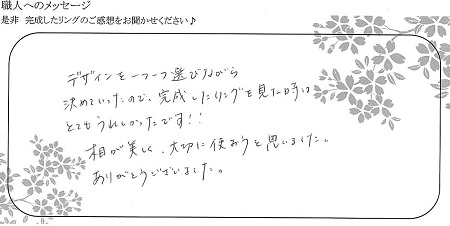 職人へのメッセージ
是非 完成したリングのご感想をお聞かせください♪
デザインを一つ一つ選びながら
決めていったので、完成したリングを見た時は
とてもうれしかったです!!
相が美しく、大切に使おうと思いました。
ありがとうございました。